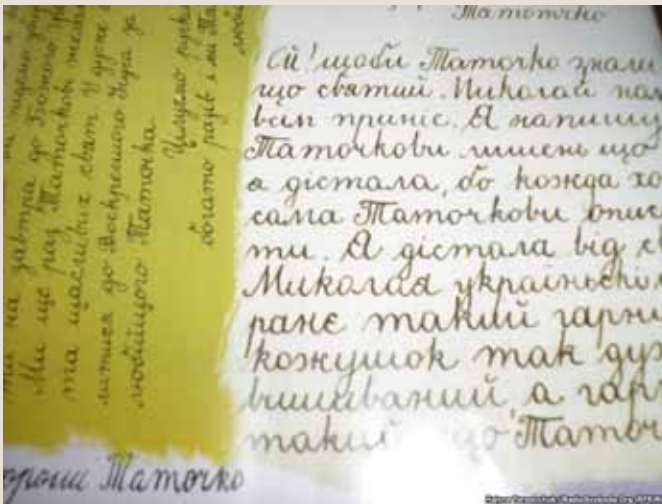 Таточко
Ей! щоби Таточко знали
що святий Николай нам
всім приніс. Я напишу
Таточкови лишень що
я дістала, бо кожда хо
сама Таточкови опис
ти. Я дістала від с
Миколая україньскі
ране такий гарни
кожушок так дуж
вишиваний, а гар
такий що Таточ
ти на завтра до Божого
Ми ще раз Таточкови
та щасливих свят У друге
литися до Воскресшого Ісуса за
любійшого Таточка.
Цілуємо ручки
богато разів і ми Та
любі
орогий Таточко